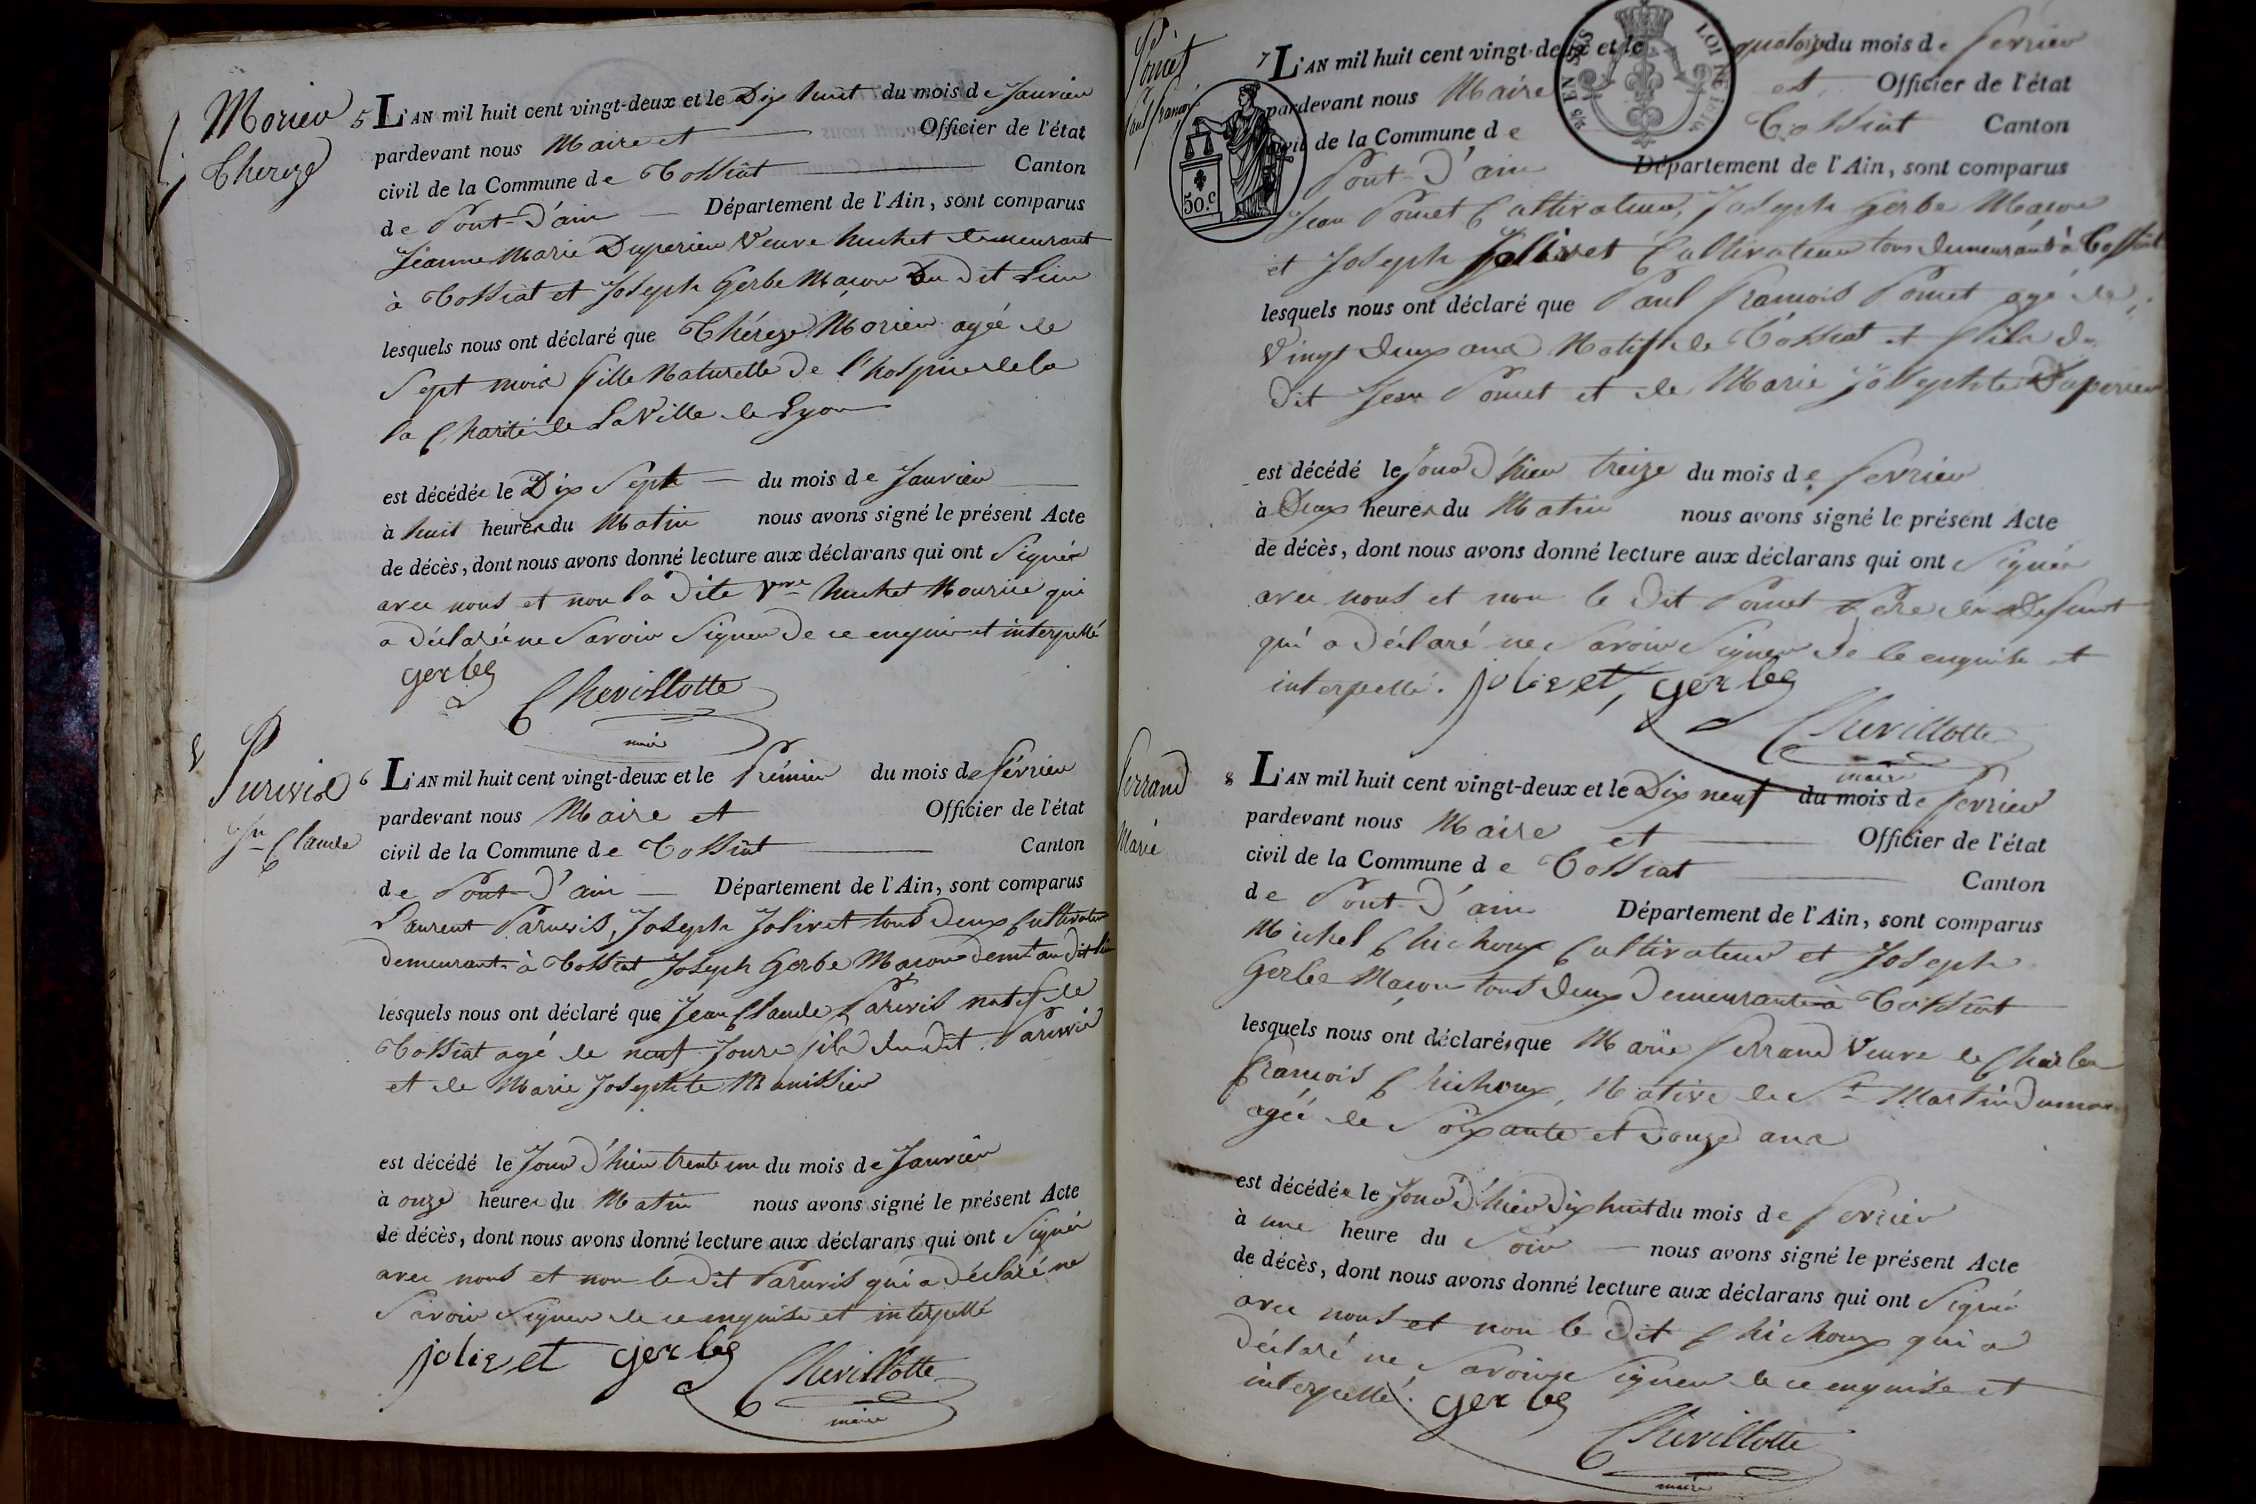 Morier
Thereze
5 L'AN mil huit cent vingt-deux et le Dix huit du mois de Janvier
pardevant nous Maire et Officier de l'état
civil de la Commune de Tossiat Canton
de Pont-D'ain Département de l'Ain, sont comparus
Jeanne Marie Duperier Veuve huchet demeurant
à Tossiat et Joseph Gerbe Maçon Du dit Lieu
lesquels nous ont déclaré que Théreze Morier agée de
Sept mois fille Naturelle De l'hospice de la
la Charité de La Ville de Lyon
est décédée le Dix Sept du mois de Janvier
à huit heures du Matin nous avons signé le présent Acte
de décès, dont nous avons donné lecture aux déclarans qui ont Signés
avec nous et non la Dite Vve huchet Nourice qui
a déclarée ne Savoir Signer De ce enquis et interpellé
gerbe
Chevillotte
maire
Jn Claude
6 L'AN mil huit cent vingt-deux et le Prémier du mois de février
pardevant nous Maire et Officier de l'état
civil de la Commune de Tossiat Canton
de Pont-D'ain Département de l'Ain, sont comparus
Laurent Paruvis, Joseph Jolivet tous Deux Cultivateurs
demeurants à Tossiat Joseph Gerbe Maçon demt au dit lieu
lesquels nous ont déclaré que Jean Claude Paruvis natif de
Tossiat agé de neuf Jours fils du dit Paruvis
et de Marie Josephte Manissier
est décédé le Jour d'hier trente un du mois de Janvier
à onze heures du Matin nous avons signé le présent Acte
de décès, dont nous avons donné lecture aux déclarans qui ont Signés
avec nous et non le dit Paruvis qui a Déclaré ne
Savoir Signer de ce enquis et interpellé
jolivet gerbe Chevillotte
maire
Pomet
Paul françois
50.c
LOI DE 1816
7 L'AN mil huit cent vingt-deux et le quatorze du mois de fevrier
pardevant nous Maire et Officier de l'état
civil de la Commune de Tossiat Canton
Pont-D'ain Département de l'Ain, sont comparus
Jean Pomet Cultivateur, Joseph Gerbe Maçon
et Joseph Jolivet Cultivateur tous demeurants à Tossiat
lesquels nous ont déclaré que Paul francois Pomet agé de
Vingt deux ans Natif de Tossiat et fils du
dit Jean Pomet et de Marie Josephte Duperier
est décédé le Jour d'hier treize du mois de fevrier
à Deux heures du Matin nous avons signé le présent Acte
de décès, dont nous avons donné lecture aux déclarans qui ont Signés
avec nous et non le Dit Pomet Pere du Defunt
qui a déclaré ne Savoir Signer de ce enquis et
interpellé. jolivet, gerbe
Chevillotte
maire
Ferrand
Marie
8 L'AN mil huit cent vingt-deux et le Dix neuf du mois de fevrier
pardevant nous Maire et Officier de l'état
civil de la Commune de Tossiat Canton
de Pont-D'ain Département de l'Ain, sont comparus
Michel Chichoux Cultivateur et Joseph
Gerbe Maçon tous deux Demeurants à Tossiat
lesquels nous ont déclarés que Marie ferrand Veuve de Charles
françois Chichoux, Native de St Martin Dumon
agée de Soixante et Douze ans
est décédée le Jour d'hier Dix huit du mois de fevrier
à une heure du Soir nous avons signé le présent Acte
de décès, dont nous avons donné lecture aux déclarans qui ont Signés
avec nous et non le Dit Chichoux qui a
déclaré ne Savoir Signer de ce enquis et
interpellé. gerbe
Chevillotte
maire